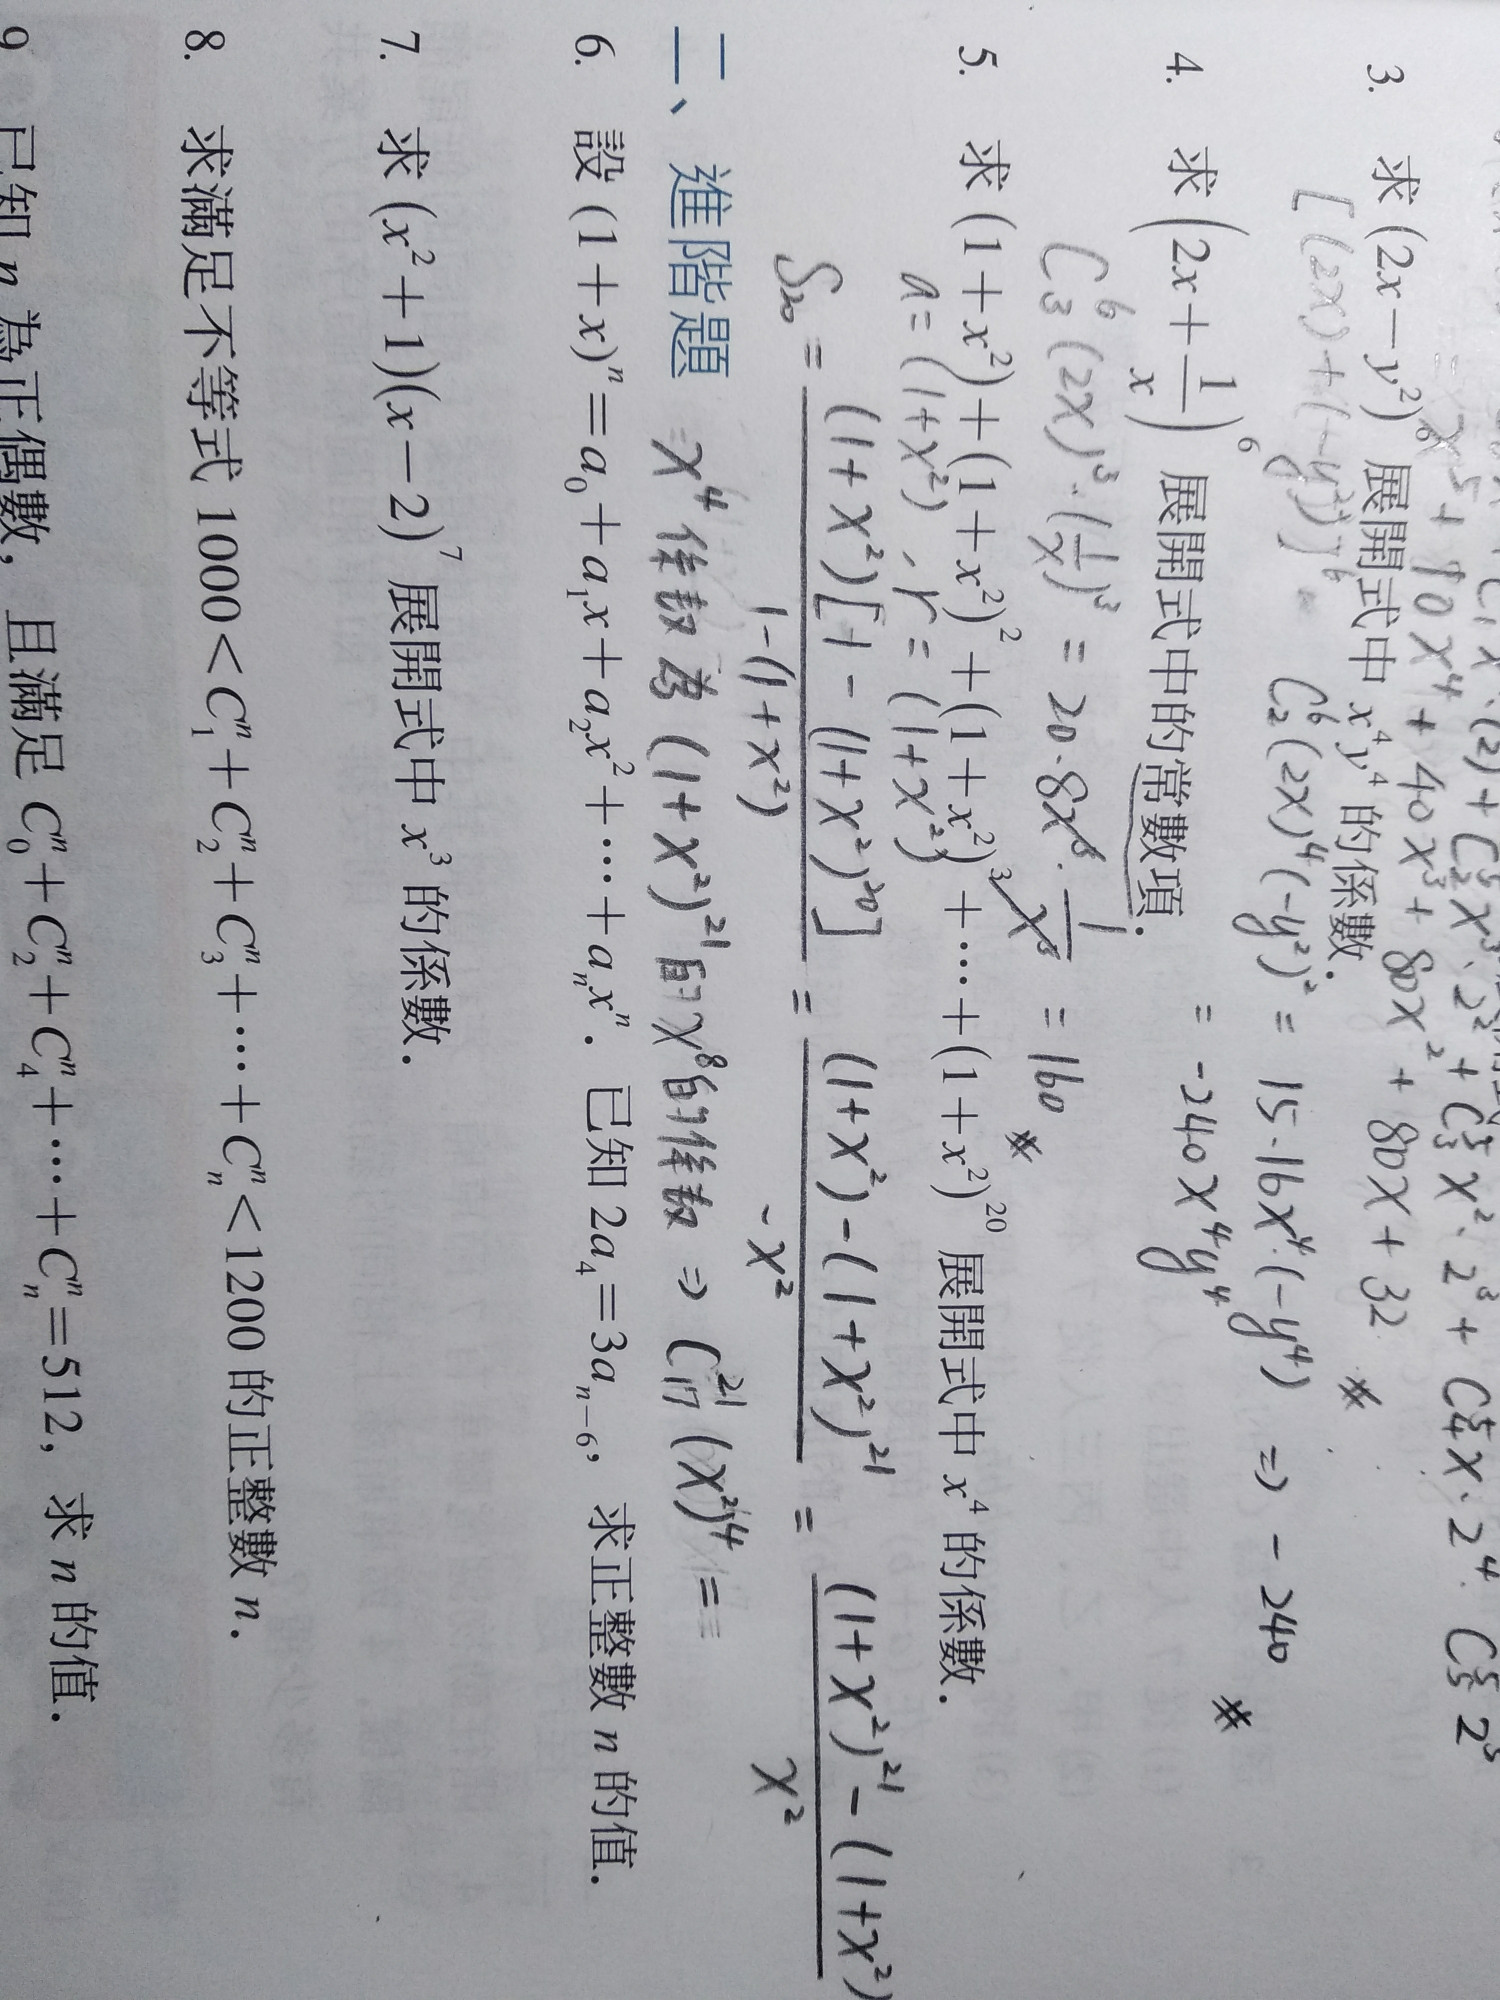 x⁵ + 10x⁴ + 40x³ + 80x² + 80x + 32 ※
3. 求 (2x − y²)⁶ 展開式中 x⁴y⁴ 的係數.
[(2x) + (−y²)]⁶ = C⁶₂ (2x)⁴ (−y²)² = 15·16x⁴·(−y⁴) ⇒ −240 ※
= −240x⁴y⁴
4. 求 (2x + 1/x)⁶ 展開式中的常數項.
C⁶₃ (2x)³·(1/x)³ = 20·8x³·1/x³ = 160 ※
5. 求 (1 + x²) + (1 + x²)² + (1 + x²)³ + ⋯ + (1 + x²)²⁰ 展開式中 x⁴ 的係數.
a = (1+x²), r = (1+x²)
S₂₀ = (1+x²)[1 − (1+x²)²⁰] / 1−(1+x²) = (1+x²) − (1+x²)²¹ / −x² = (1+x²)²¹ − (1+x²) / x²
x⁴ 係數為 (1+x²)²¹ 的 x⁸ 的係數 ⇒ C²¹₁₇ (x²)⁴ =
二、進階題
6. 設 (1 + x)ⁿ = a₀ + a₁x + a₂x² + ⋯ + aₙxⁿ. 已知 2a₄ = 3aₙ₋₆, 求正整數 n 的值.
7. 求 (x² + 1)(x − 2)⁷ 展開式中 x³ 的係數.
8. 求滿足不等式 1000 < Cⁿ₁ + Cⁿ₂ + Cⁿ₃ + ⋯ + Cⁿₙ < 1200 的正整數 n.
9 已知 n 為正偶數, 且滿足 Cⁿ₀ + Cⁿ₂ + Cⁿ₄ + ⋯ + Cⁿₙ = 512, 求 n 的值.